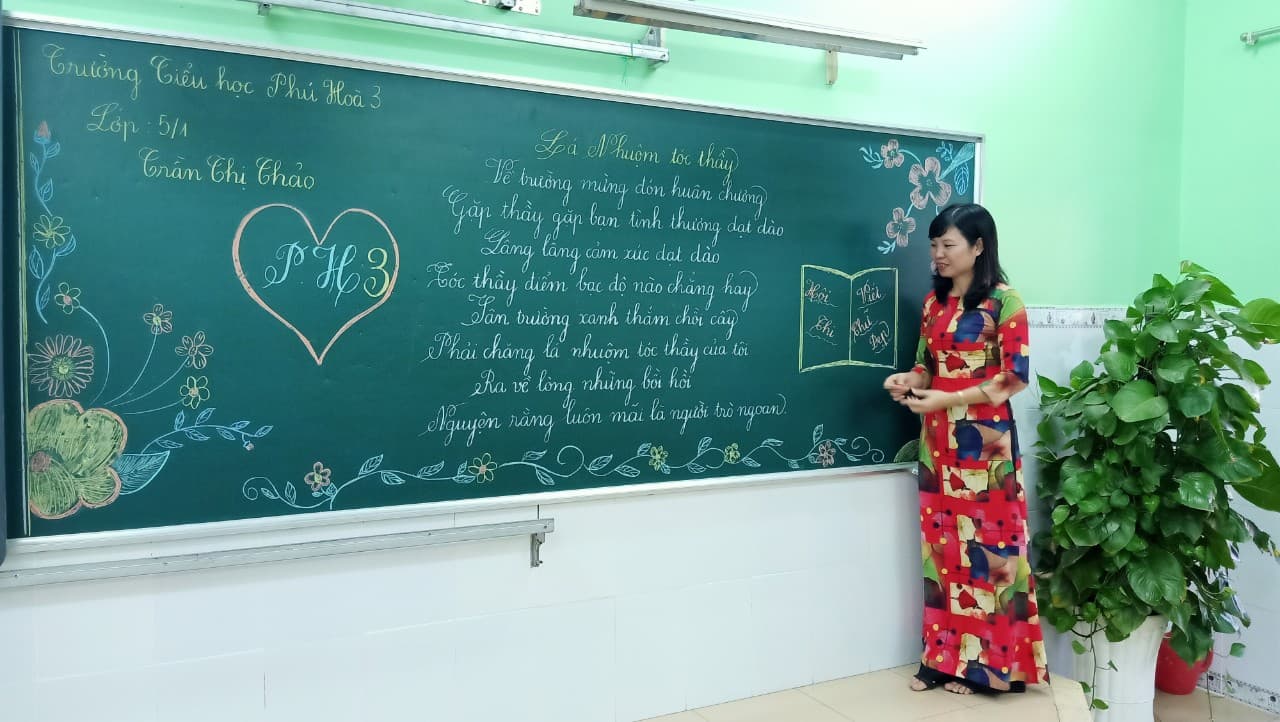 Trường Tiểu học Phú Hoà 3
Lớp : 5/1
Trần Thị Thảo
P.H3
Lá Nhuộm tóc thầy
Về trường mừng đón huân chương
Gặp thầy gặp bạn tình thương dạt dào
Lòng lâng cảm xúc dạt dào
Tóc thầy điểm bạc độ nào chẳng hay
Sân trường xanh thắm chồi cây
Phải chăng lá nhuộm tóc thầy của tôi
Ra về lòng những bồi hồi
Nguyện rằng luôn mãi là người trò ngoan.
Hội
Thi
Viết
Chữ
Đẹp